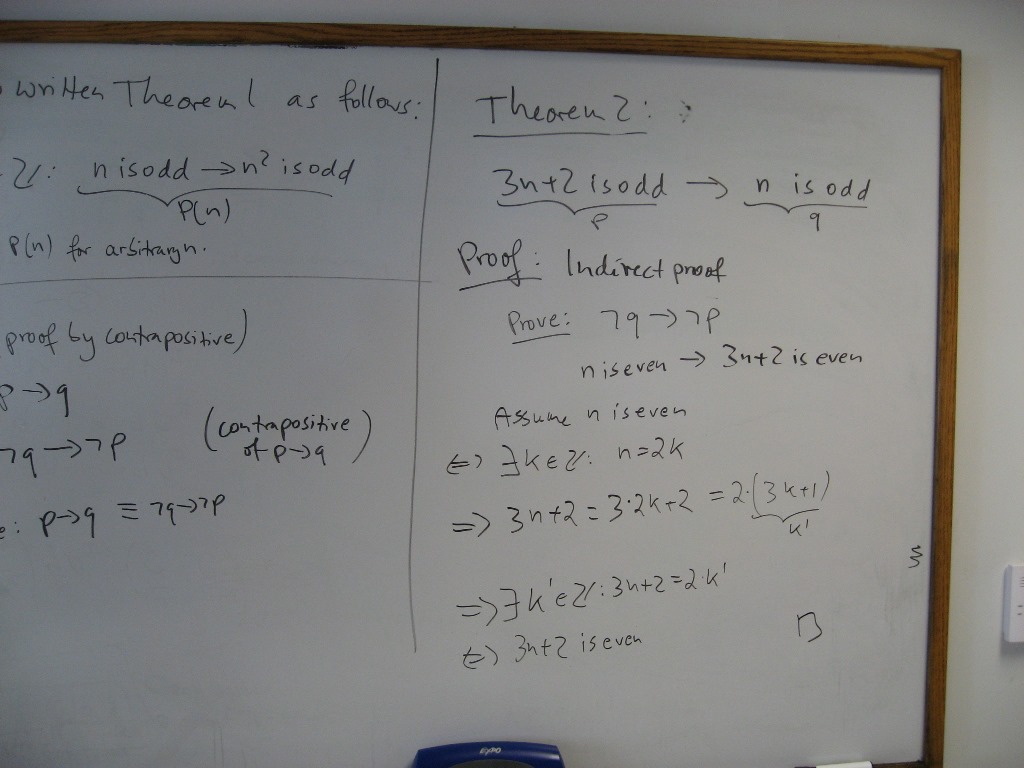 written Theorem 1 as follows:
ℤ: n is odd → n² is odd
P(n)
P(n) for arbitrary n.
proof by contrapositive)
p → q
¬q → ¬p
(contrapositive
of p → q)
e: p → q ≡ ¬q → ¬p
Theorem 2:
3n+2 is odd → n is odd
p q
Proof: Indirect proof
Prove: ¬q → ¬p
n is even → 3n+2 is even
Assume n is even
⇔ ∃k∈ℤ: n=2k
⇒ 3n+2 = 3·2k+2 = 2·(3k+1)
k'
⇒ ∃k'∈ℤ: 3n+2=2·k'
⇔ 3n+2 is even
EXPO